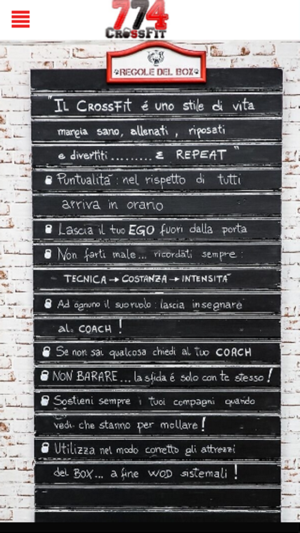 774
CROSSFIT
REGOLE DEL BOX
"IL CROSSFIT é uno stile di vita
mangia sano, allenati, riposati
e divertiti ......... & REPEAT"
Puntualità: nel rispetto di tutti
arriva in orario
Lascia il tuo EGO fuori dalla porta
Non farti male... ricordati sempre:
TECNICA → COSTANZA → INTENSITÀ
Ad ognuno il suo ruolo: lascia insegnare
al COACH!
Se non sai qualcosa chiedi al tuo COACH
NON BARARE... la sfida é solo con te stesso!
Sostieni sempre i tuoi compagni quando
vedi che stanno per mollare!
Utilizza nel modo corretto gli attrezzi
del BOX... a fine WOD sistemali!